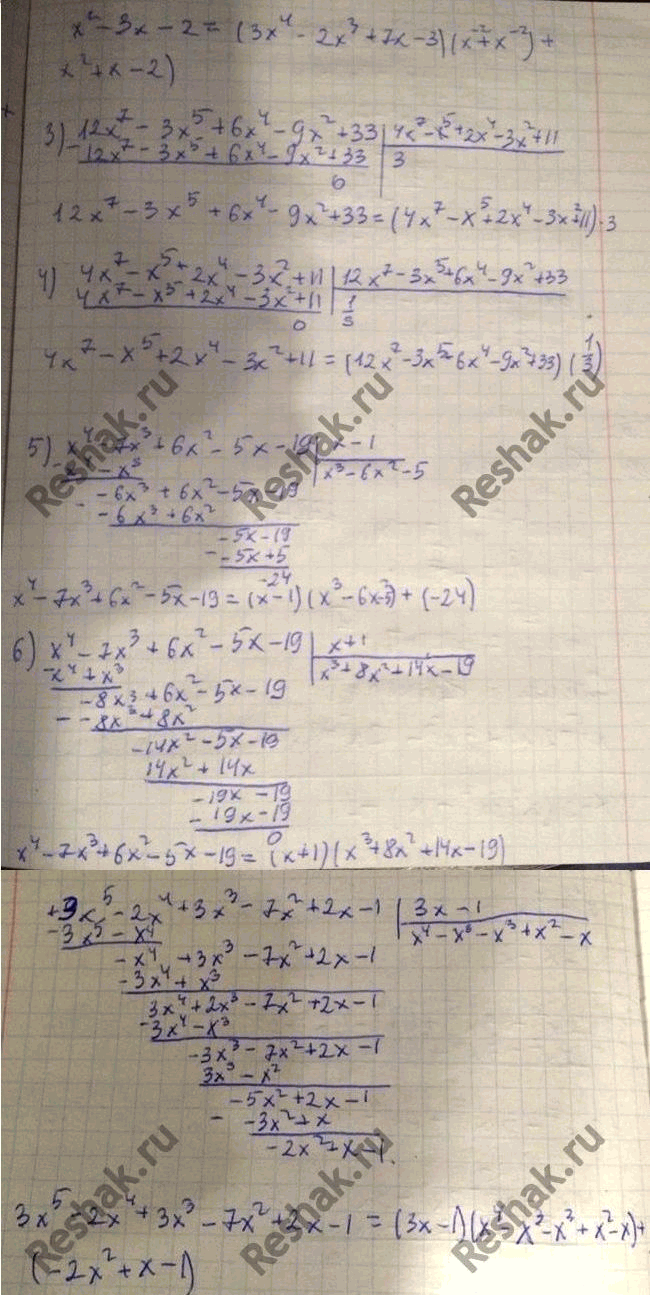 x² - 3x - 2 = (3x⁴ - 2x³ + 7x - 3)(x⁻² + x⁻²) +
x² + x - 2)
3) 12x⁷ - 3x⁵ + 6x⁴ - 9x² + 33 | 4x⁷ - x⁵ + 2x⁴ - 3x² + 11
12x⁷ - 3x⁵ + 6x⁴ - 9x² + 33 | 3
0
12x⁷ - 3x⁵ + 6x⁴ - 9x² + 33 = (4x⁷ - x⁵ + 2x⁴ - 3x² + 11)·3
4) 4x⁷ - x⁵ + 2x⁴ - 3x² + 11 | 12x⁷ - 3x⁵ + 6x⁴ - 9x² + 33
4x⁷ - x⁵ + 2x⁴ - 3x² + 11 | 1/3
0
4x⁷ - x⁵ + 2x⁴ - 3x² + 11 = (12x⁷ - 3x⁵ - 6x⁴ - 9x² + 33)(1/3)
5) x⁴ - 7x³ + 6x² - 5x - 19 | x - 1
x⁴ - x³ | x³ - 6x² - 5
- 6x³ + 6x² - 5x - 19
- -6x³ + 6x²
-5x - 19
- -5x + 5
-24
x⁴ - 7x³ + 6x² - 5x - 19 = (x - 1)(x³ - 6x² - 5) + (-24)
6) x⁴ - 7x³ + 6x² - 5x - 19 | x + 1
- x⁴ + x³ | x³ + 8x² + 14x - 19
-8x³ + 6x² - 5x - 19
- -8x³ + 8x²
-14x² - 5x - 19
14x² + 14x
-19x - 19
- 19x - 19
0
x⁴ - 7x³ + 6x² - 5x - 19 = (x + 1)(x³ + 8x² + 14x - 19)
+3x⁵ - 2x⁴ + 3x³ - 7x² + 2x - 1 | 3x - 1
- 3x⁵ - x⁴ | x⁴ - x³ - x³ + x² - x
- x⁴ + 3x³ - 7x² + 2x - 1
- 3x⁴ + x³
3x⁴ + 2x³ - 7x² + 2x - 1
- 3x⁴ - x³
-3x³ - 7x² + 2x - 1
3x³ - x²
-5x² + 2x - 1
- -3x² + x
-2x² + x - 1.
3x⁵ - 2x⁴ + 3x³ - 7x² + 2x - 1 = (3x - 1)(x⁴ - x³ - x³ + x² - x) +
(-2x² + x - 1)
Reshak.ru
Reshak.ru
Reshak.ru
Reshak.ru
Reshak.ru
Reshak.ru